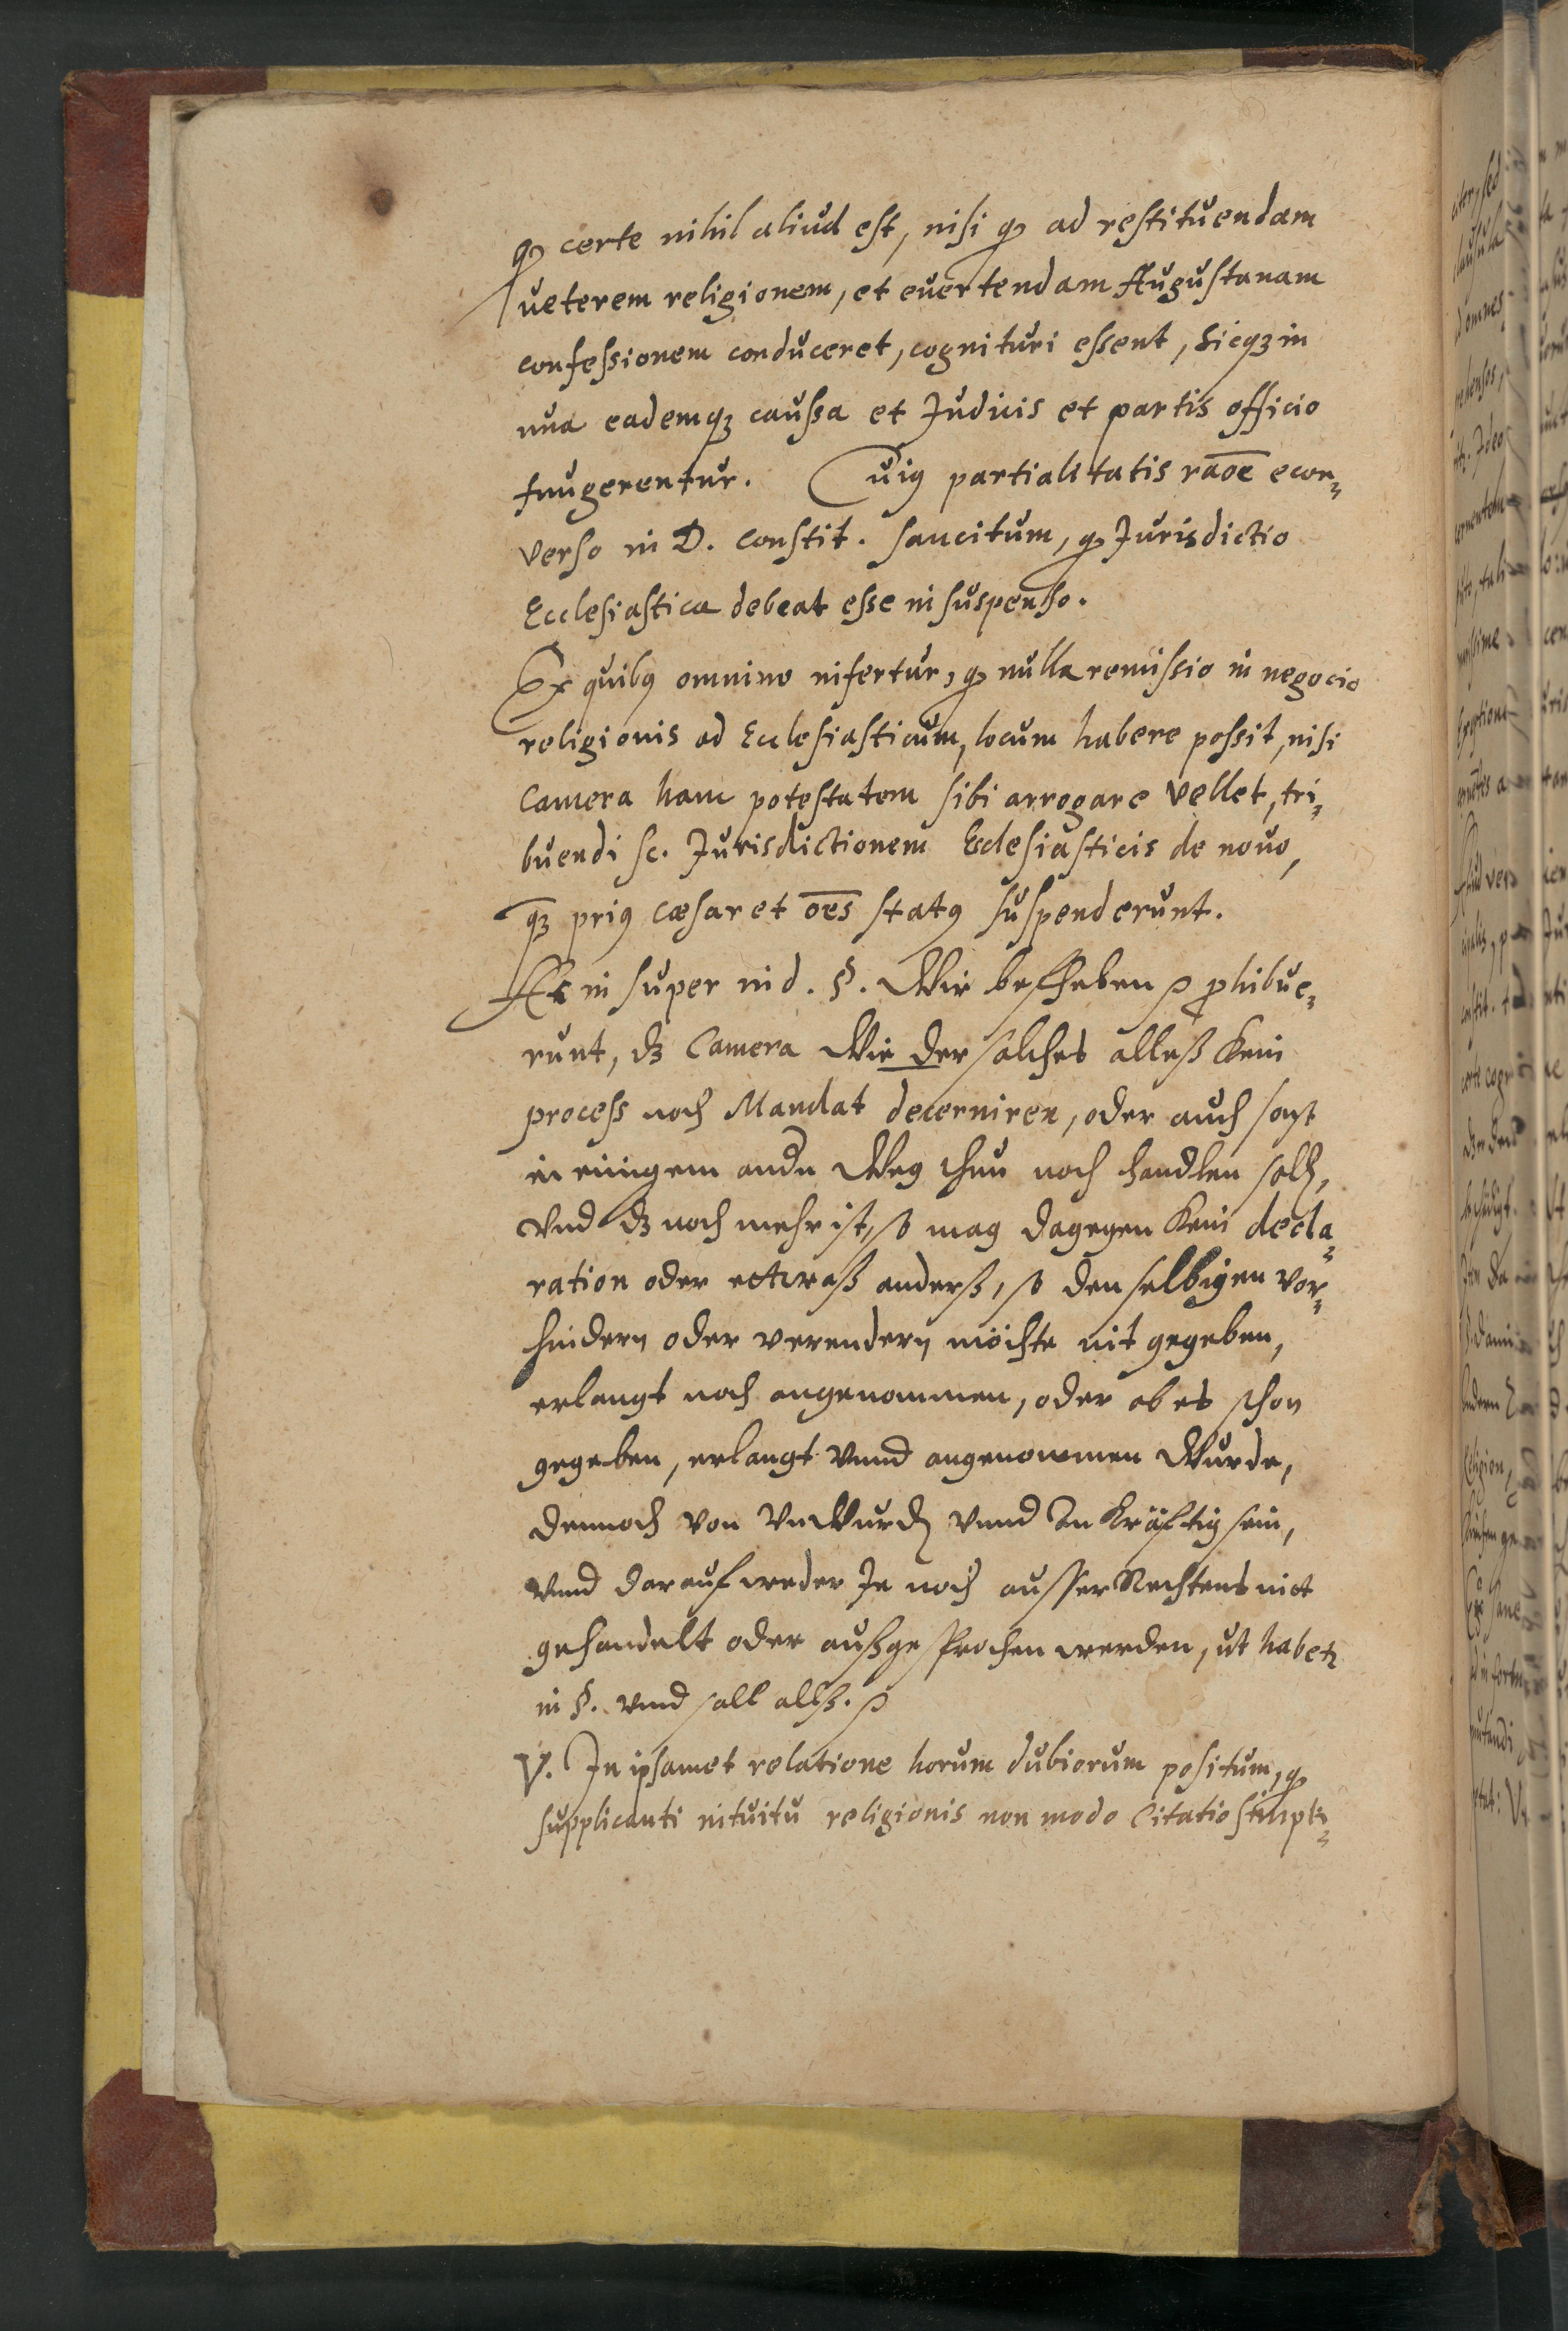 qͦ certe nihil aliud est, nisi qͦ ad restituendam
ueterem religionem, et euertendam Augustanam
confessionem conduceret, cognituri essent, sicq3 in
una eademq3 caussa et Judicis et partis officio
fungerentur. Cuiq partialitatis rāoē econ=
verso in D. constit. sancitum, qͦ Jurisdictio
Ecclesiastica debeat esse in suspenso.
Ex quibq omnino infertur, qͦ nulla remissio in negocio
religionis ad Ecclesiasticum, locum habere possit, nisi
Camera hanc potestatem sibi arrogare vellet, tri=
buendi sc. Jurisdictionem Ecclesiasticis de nouo,
q3 priq cæsar et ōēs statq suspenderunt.
At insuper in d. §. Wir befheben ꝓhibue=
runt, d3 Camera Wieder solches alleß kein
process noch Mandat decerniren, oder auch sonst
in einigem andn Weg thun noch handlen soll,
Vnd d3 noch mehr ist, so mag dagegen kein decla=
ration oder ettwaß anderß, so denselbigen ver=
hindern oder verendern möchte nit gegeben,
erlangt noch angenommen, oder ob es schon
gegeben, erlangt vnnd angenommen Wurde,
dennoch von VnWurdn vnnd Vnkräfftig sein,
vnnd darauf weder In noch ausser Rechtens nict
gehandelt oder außgesprochen werden, ut habetr
in §. vnnd soll alleß.
V. In ipsamet relatione horum dubiorum positum, qͦ
supplicanti intuitu religionis non modo Citatio simpli=